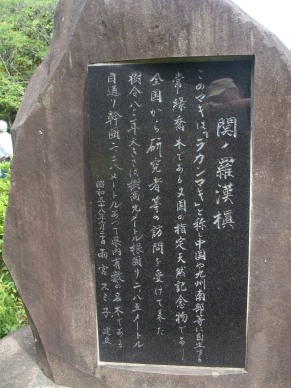 関ノ羅漢槇
このマキは、「ラカンマキ」と称し中国や九州南部等に自生する
常緑喬木である又国の指定天然記念物であり
全国から研究者等の訪問を受けて来た
樹令八二〇年大きさは樹高九メートル根廻り二・八五メートル
目通り幹囲二・二八メートルあって県内有数の名木である
昭和五十八年 雨宮スミ子 建立